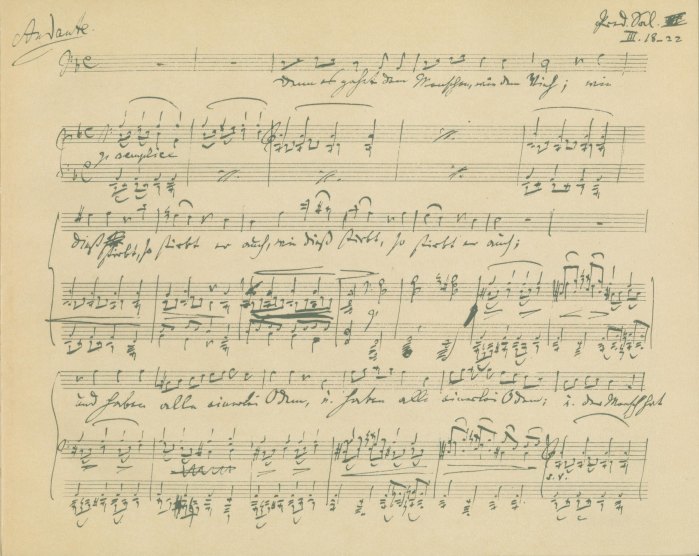 Andante.
Pred. Sal.
III. 18–22
Denn es gehet dem Menschen, wie dem Vieh; wie
p semplice
dieß stirbt, so stirbt er auch, wie dieß stirbt, so stirbt er auch;
und haben alle einerlei Odem, u. haben alle einerlei Odem; u. der Mensch hat
s.v.